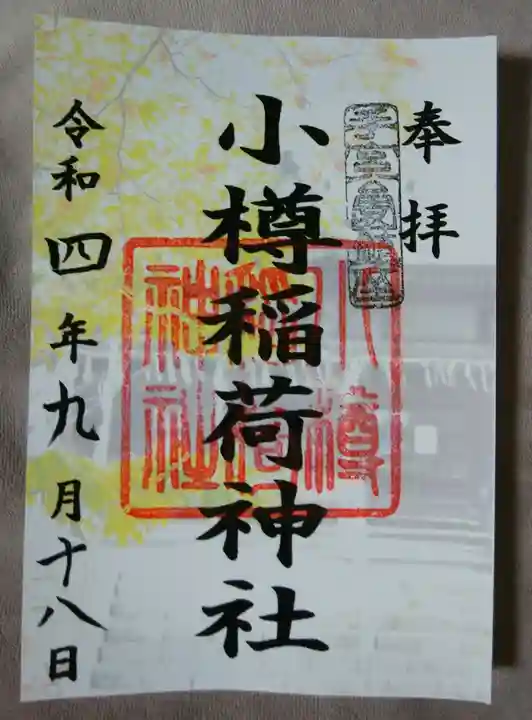 奉拝
小樽稲荷神社
小樽稲荷神社
令和四年九月十八日